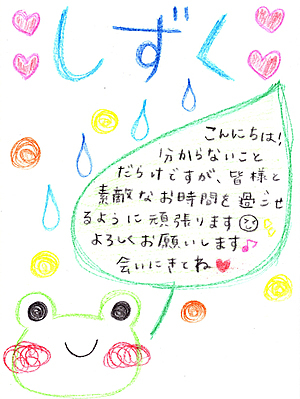 しずく
こんにちは!
分からないこと
だらけですが、皆様と
素敵なお時間を過ごせ
るように頑張ります
よろしくお願いします♪
会いにきてね♥